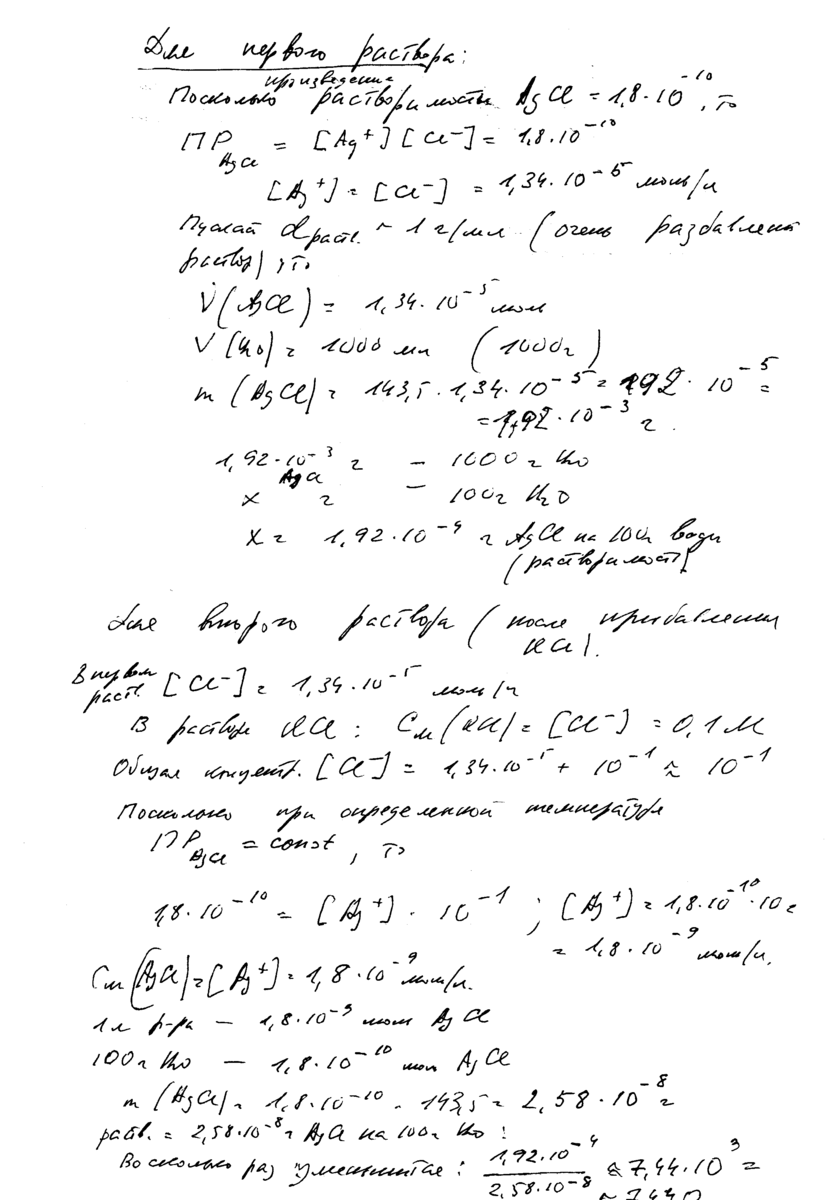 Для первого раствора:
произведение
Поскольку растворимости AgCl = 1,8·10⁻¹⁰, то
ПР AgCl = [Ag⁺][Cl⁻] = 1,8·10⁻¹⁰
[Ag⁺] = [Cl⁻] = 1,34·10⁻⁵ моль/л
Пускай d раст. ~ 1 г/мл (очень разбавлен
раствор), то
V(AgCl) = 1,34·10⁻⁵ моль
V(H₂O) = 1000 мл (1000г)
m(AgCl) = 143,5·1,34·10⁻⁵ = 192·10⁻⁵ =
= 1,92·10⁻³ г.
1,92·10⁻³ г — 1000 г H₂O
AgCl
x г — 100г H₂O
x = 1,92·10⁻⁴ г AgCl на 100г воды
(растворимость)
Для второго раствора (после прибавления
KCl).
В первом
раст. [Cl⁻] = 1,34·10⁻⁵ моль/л
В растворе KCl: Cм(KCl) = [Cl⁻] = 0,1 М
Общая концент. [Cl⁻] = 1,34·10⁻⁵ + 10⁻¹ ≈ 10⁻¹
Поскольку при определенной температуре
ПР AgCl = const, то
1,8·10⁻¹⁰ = [Ag⁺]·10⁻¹; [Ag⁺] = 1,8·10⁻¹⁰·10 =
= 1,8·10⁻⁹ моль/л.
Cм(AgCl) = [Ag⁺] = 1,8·10⁻⁹ моль/л.
1л р-ра — 1,8·10⁻⁹ моль AgCl
100г H₂O — 1,8·10⁻¹⁰ моль AgCl
m(AgCl) = 1,8·10⁻¹⁰·143,5 = 2,58·10⁻⁸ г
раств. = 2,58·10⁻⁸ г AgCl на 100г H₂O!
Во сколько раз уменьшится: 1,92·10⁻⁴ / 2,58·10⁻⁸ ≈ 7,44·10³ =
≈ 7440